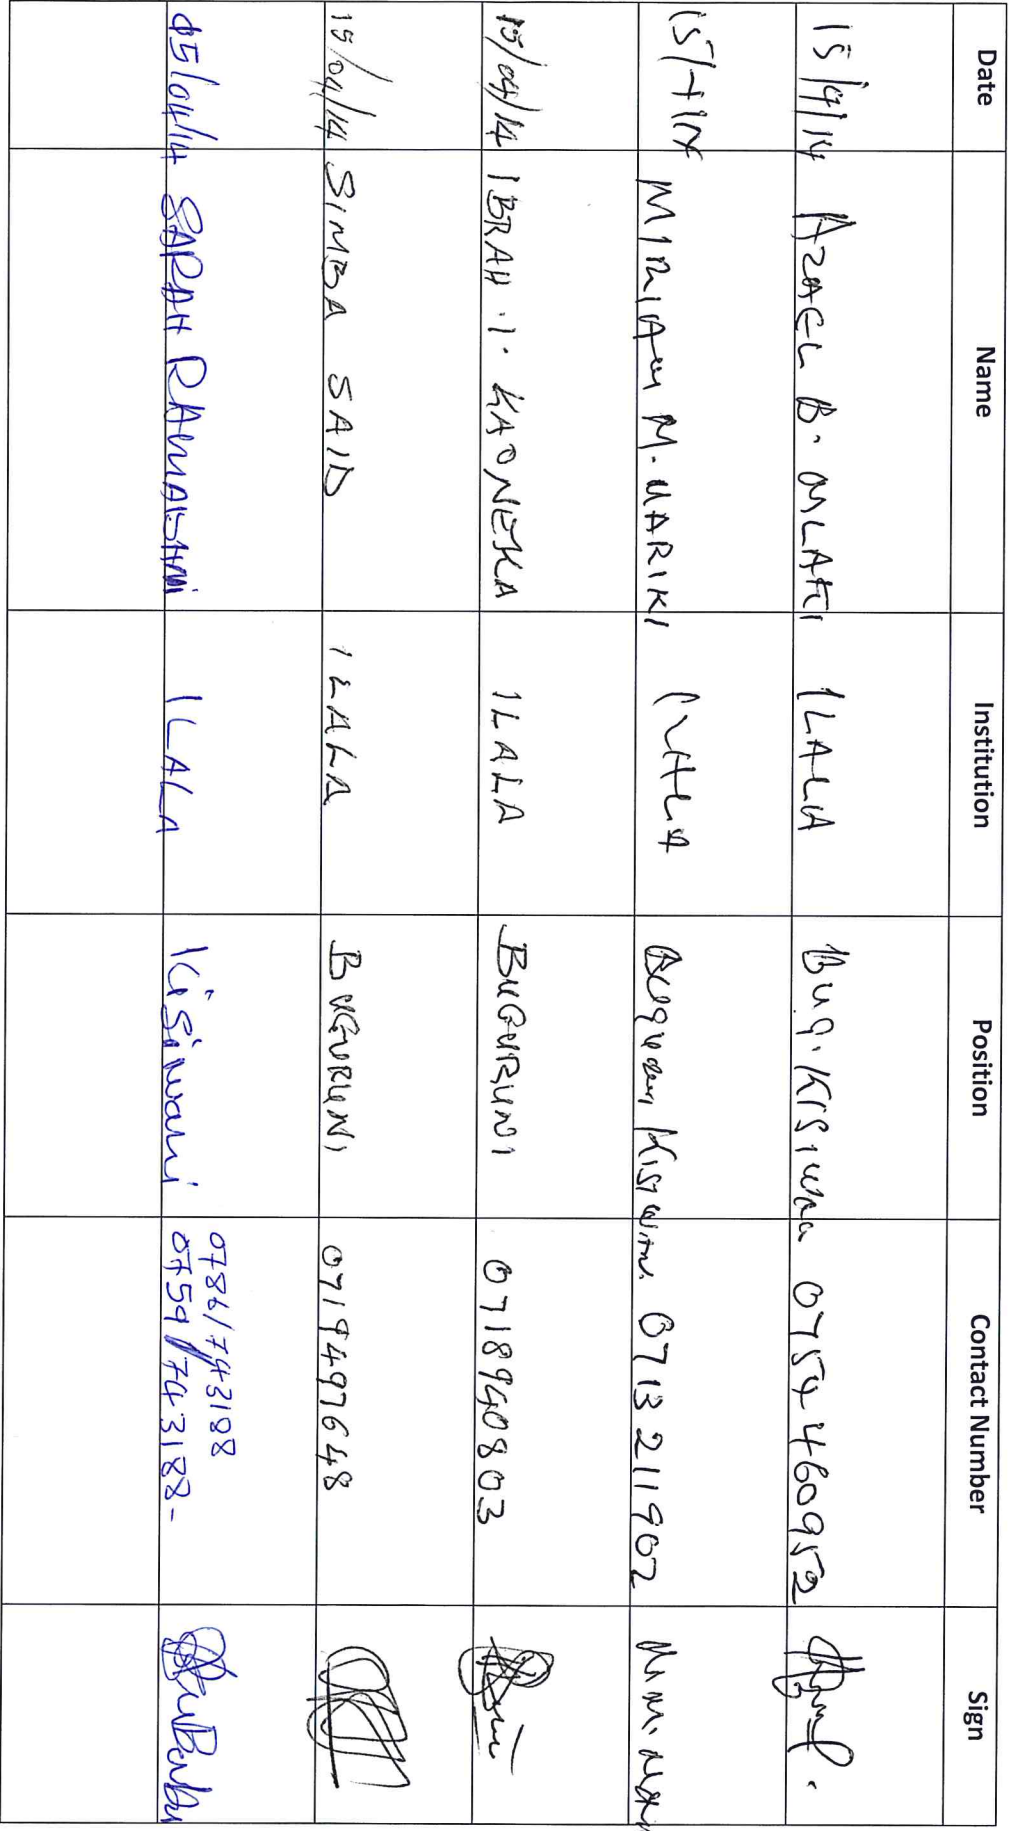 Date Name Institution Position Contact Number Sign
15/4/14 AZAEL B. MLAKI ILALA Bug. Kisiwa 0754460952
15/4/14 MIRIAM M. MARIKI ILALA Buguruni Kisiwa 0713211902
15/04/14 IBRAH .I. KAONEKA ILALA BUGURUNI 0718940803
15/04/14 SIMBA SAID ILALA BUGURUNI 0719497648
0786/743188
05/04/14 SARAH RAMADHANI ILALA Kisiwani 0759/743188-